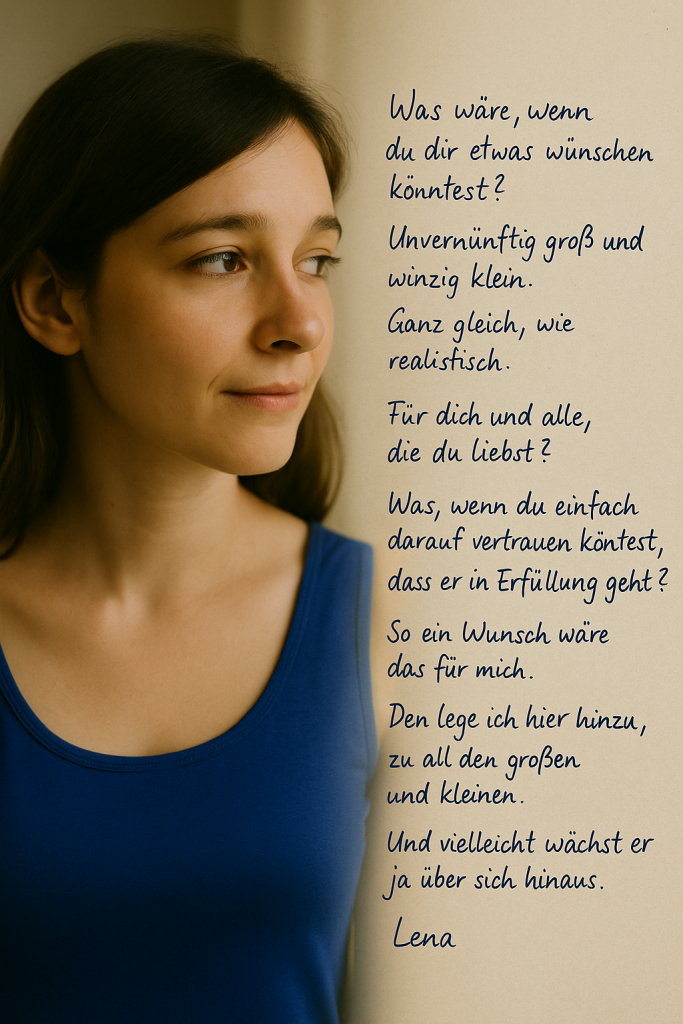 Was wäre, wenn
du dir etwas wünschen
könntest?
Unvernünftig groß und
winzig klein.
Ganz gleich, wie
realistisch.
Für dich und alle,
die du liebst?
Was, wenn du einfach
darauf vertrauen köntest,
dass er in Erfüllung geht?
So ein Wunsch wäre
das für mich.
Den lege ich hier hinzu,
zu all den großen
und kleinen.
Und vielleicht wächst er
ja über sich hinaus.
Lena